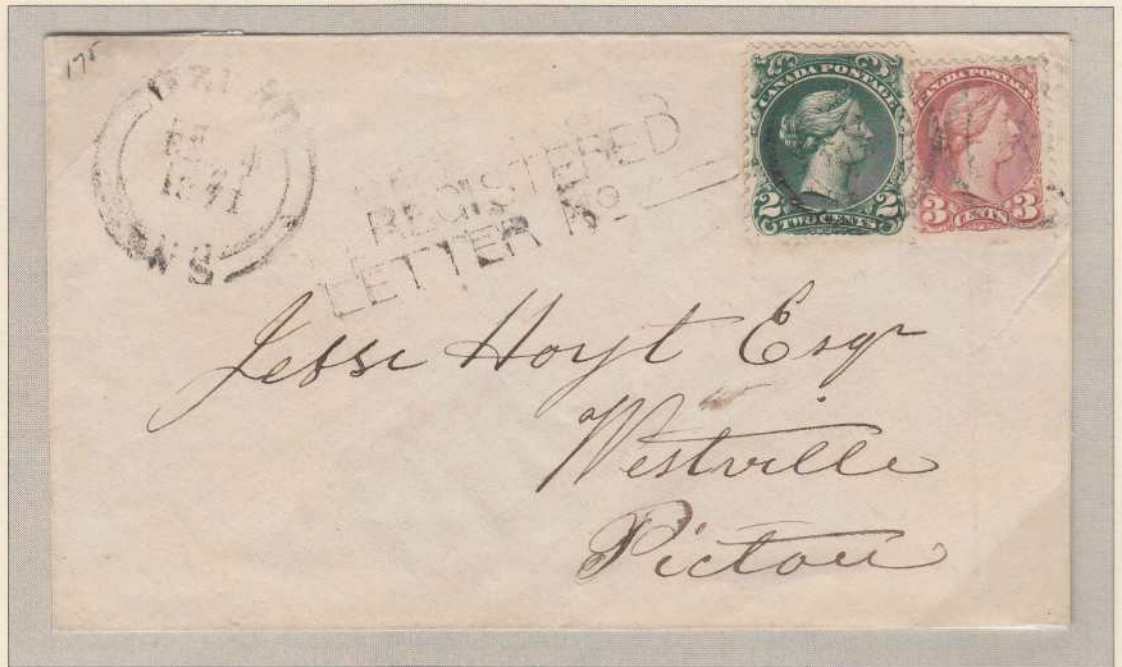 175
N.S
1871
REGISTERED
LETTER No
CANADA POSTAGE
2 2
TWO CENTS
CANADA POSTAGE
3 CENTS 3
Jesse Hoyt Esqr
Westville
Pictou